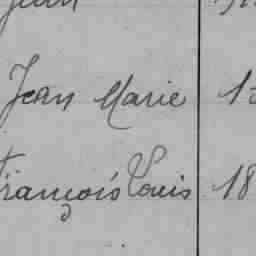 Jean Marie
François Louis 18